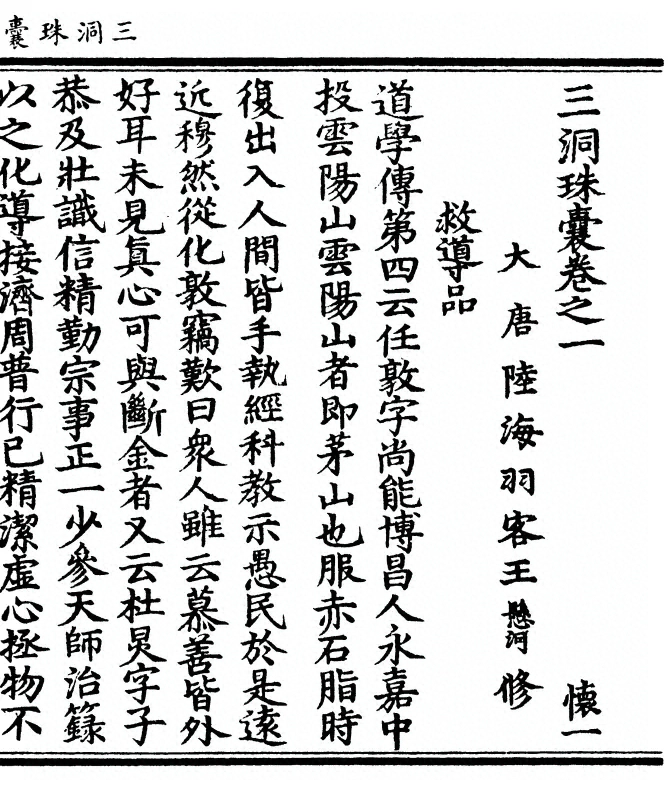 三洞珠囊
三洞珠囊卷之一　懷一
大唐陸海羽客王懸河修
救導品
道學傳第四云任敦字尚能博昌人永嘉中
投雲陽山雲陽山者即茅山也服赤石脂時
復出入人間皆手執經科教示愚民於是遠
近穆然從化敦竊歎曰衆人雖云慕善皆外
好耳未見真心可與斷金者又云杜炅字子
恭及壯識信精勤宗事正一少參天師治籙
以之化導接濟周普行已精潔虛心拯物不